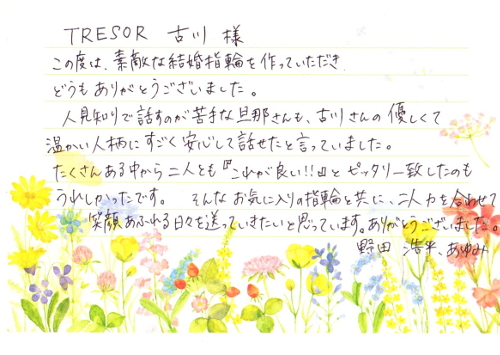 TRESOR 古川 様
この度は、素敵な結婚指輪を作っていただき
どうもありがとうございました。
人見知りで話すのが苦手な旦那さんも、古川さんの優しくて
温かい人柄にすごく安心して話せたと言っていました。
たくさんある中から二人とも『これが良い!!』とピッタリ一致したのも
うれしかったです。 そんなお気に入りの指輪と共に、二人力を合わせて
笑顔あふれる日々を送っていきたいと思っています。ありがとうございました。
野田 浩平、あゆみ